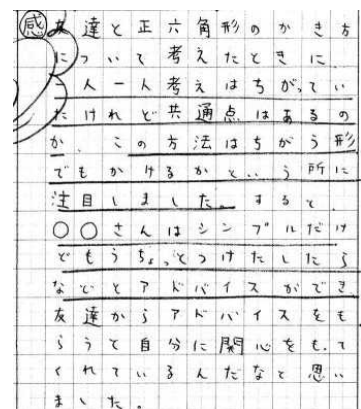 感
友達と正六角形のかき方
について考えたときに
一人一人考えはちがってい
たけれど共通点はあるの
か、この方法はちがう形
でもかけるかという所に
注目しました。すると、
○○さんはシンプルだけ
どもうちょっとつけたしたら
などとアドバイスができ、
友達からアドバイスをも
らうと自分に関心をもって
くれているんだなと思い
ました。